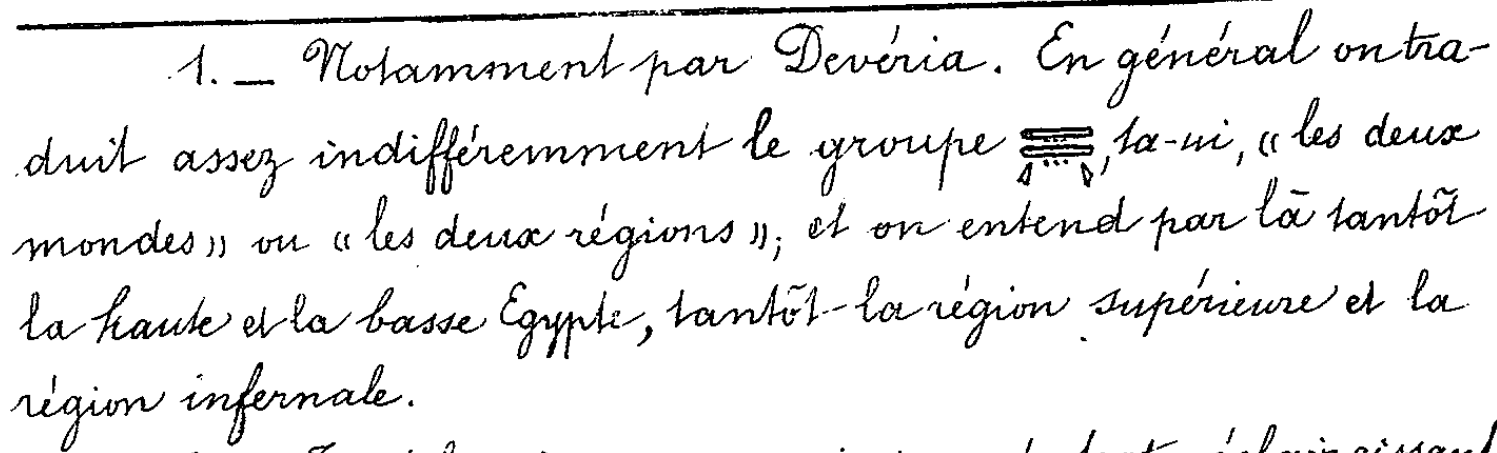 1. — Notamment par Devéria. En général on tra-
duit assez indifféremment le groupe , ta-ui, « les deux
mondes » ou « les deux régions »; et on entend par là tantôt
la haute et la basse Egypte, tantôt la région supérieure et la
région infernale.